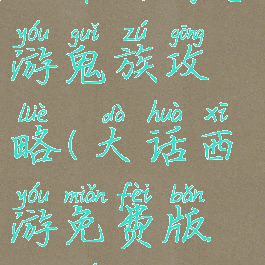 yóu guǐ zú gōng
游鬼族攻
lüè dà huà xī
略(大话西
yóu miǎn fèi bǎn
游免费版